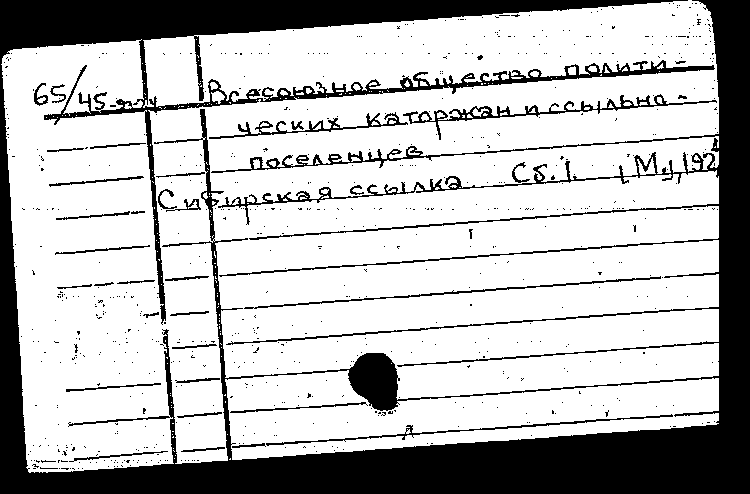 65/45 Всесоюзное общество полити-
ческих каторжан и ссыльно-
поселенцев.
Сибирская ссылка. Сб. 1. М.,